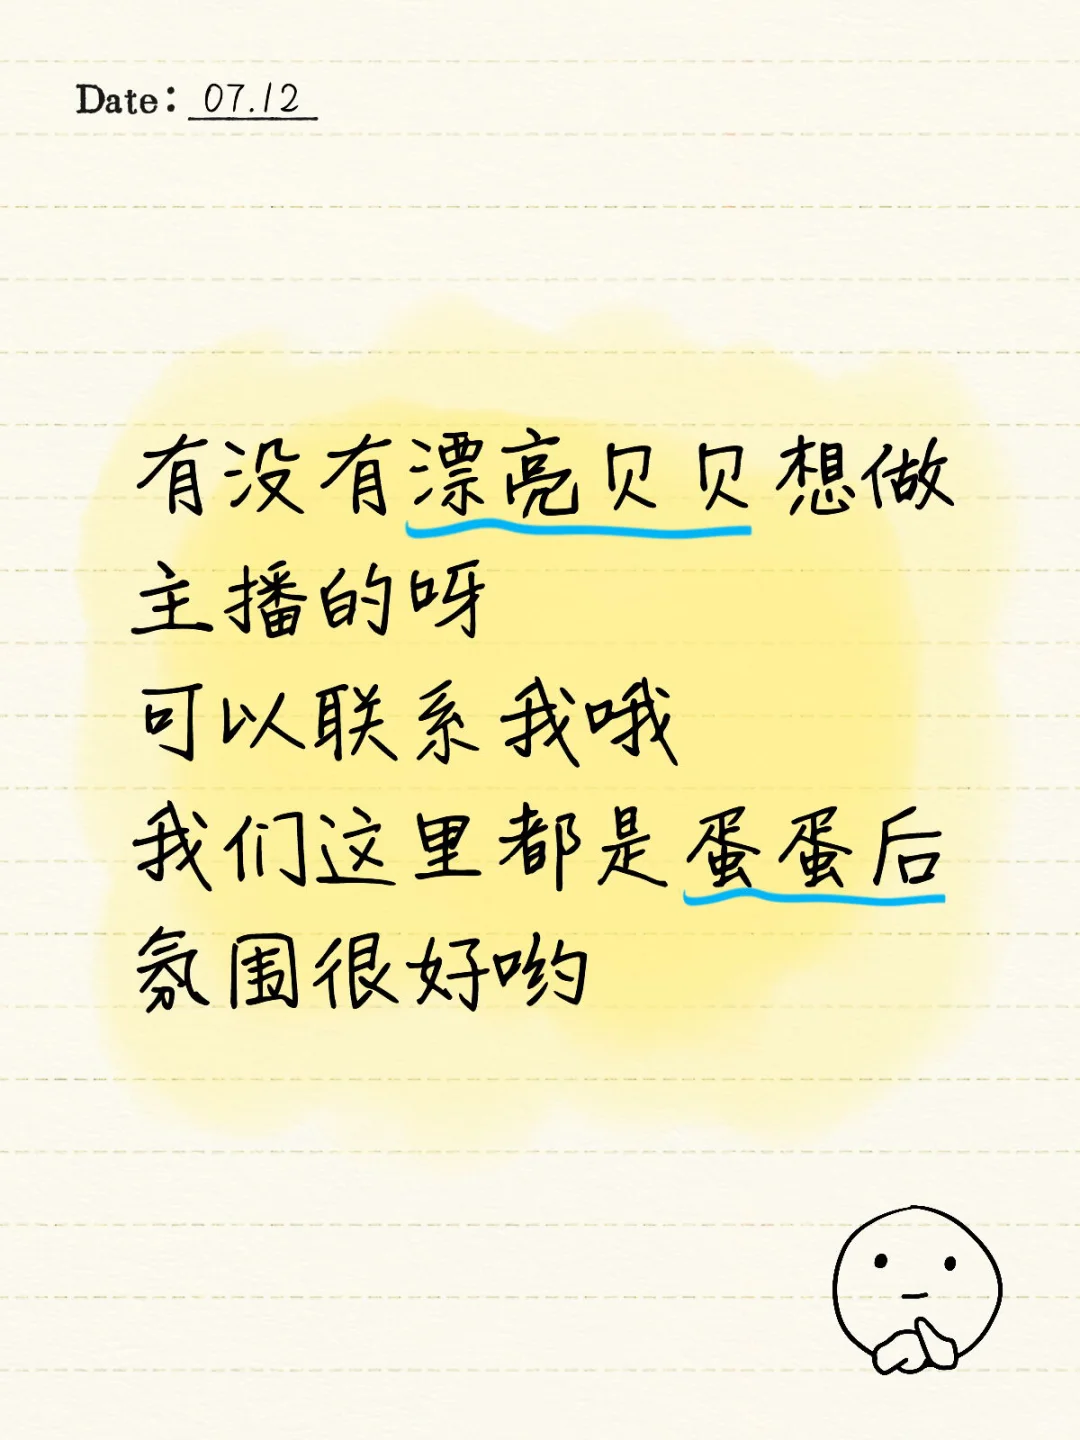 Date: 07.12
有没有漂亮贝贝想做
主播的呀
可以联系我哦
我们这里都是蛋蛋后
氛围很好哟